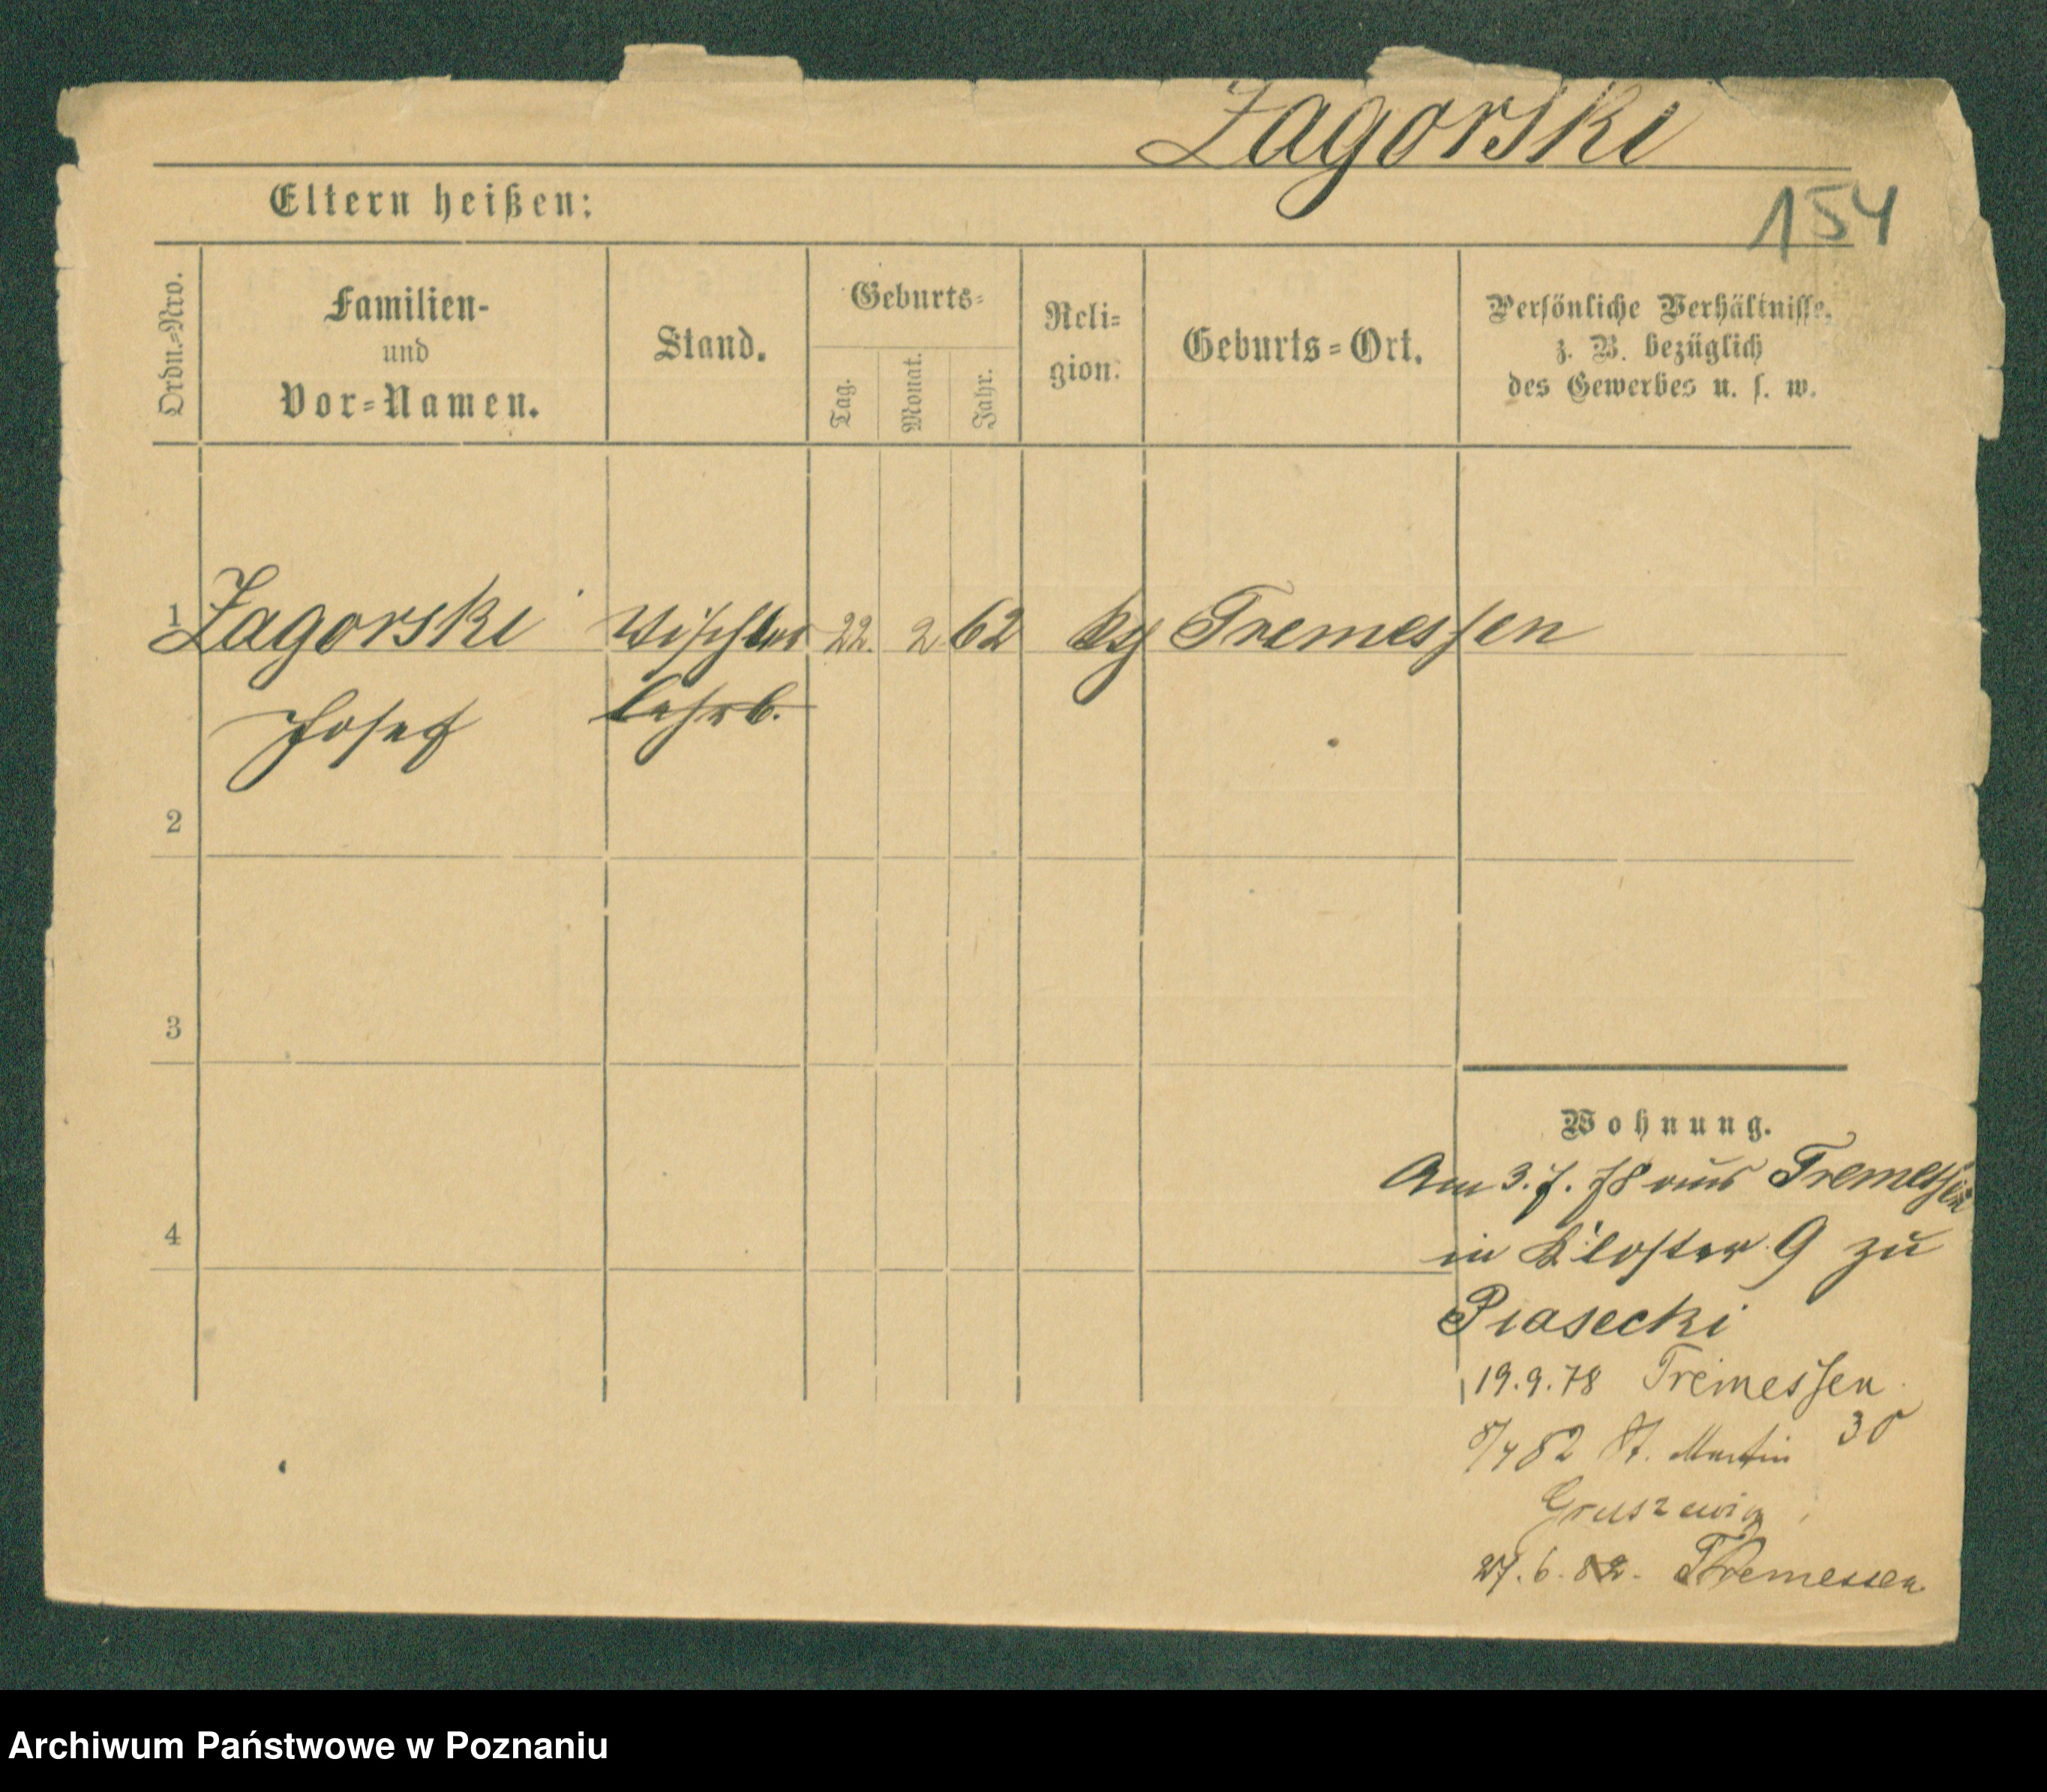 Zagorski
154
Eltern heißen:
Ordn.-Nro.
Familien-
und
Vor-Namen.
Stand.
Geburts-
Tag.
Monat.
Jahr.
Reli-
gion.
Geburts-Ort.
Persönliche Verhältnisse,
z. B. bezüglich
des Gewerbes u. s. w.
1 Zagorski Tischler 22. 2 62 Tremessen
Josef lehrb.
2
3
4
Wohnung.
Am 3. 7. 78 aus Tremessen
in Kloster 9 zu
Piasecki
19.9.78 Tremessen
8/4 82 St. Martin 30
27. 6. 82. Tremessen
Archiwum Państwowe w Poznaniu